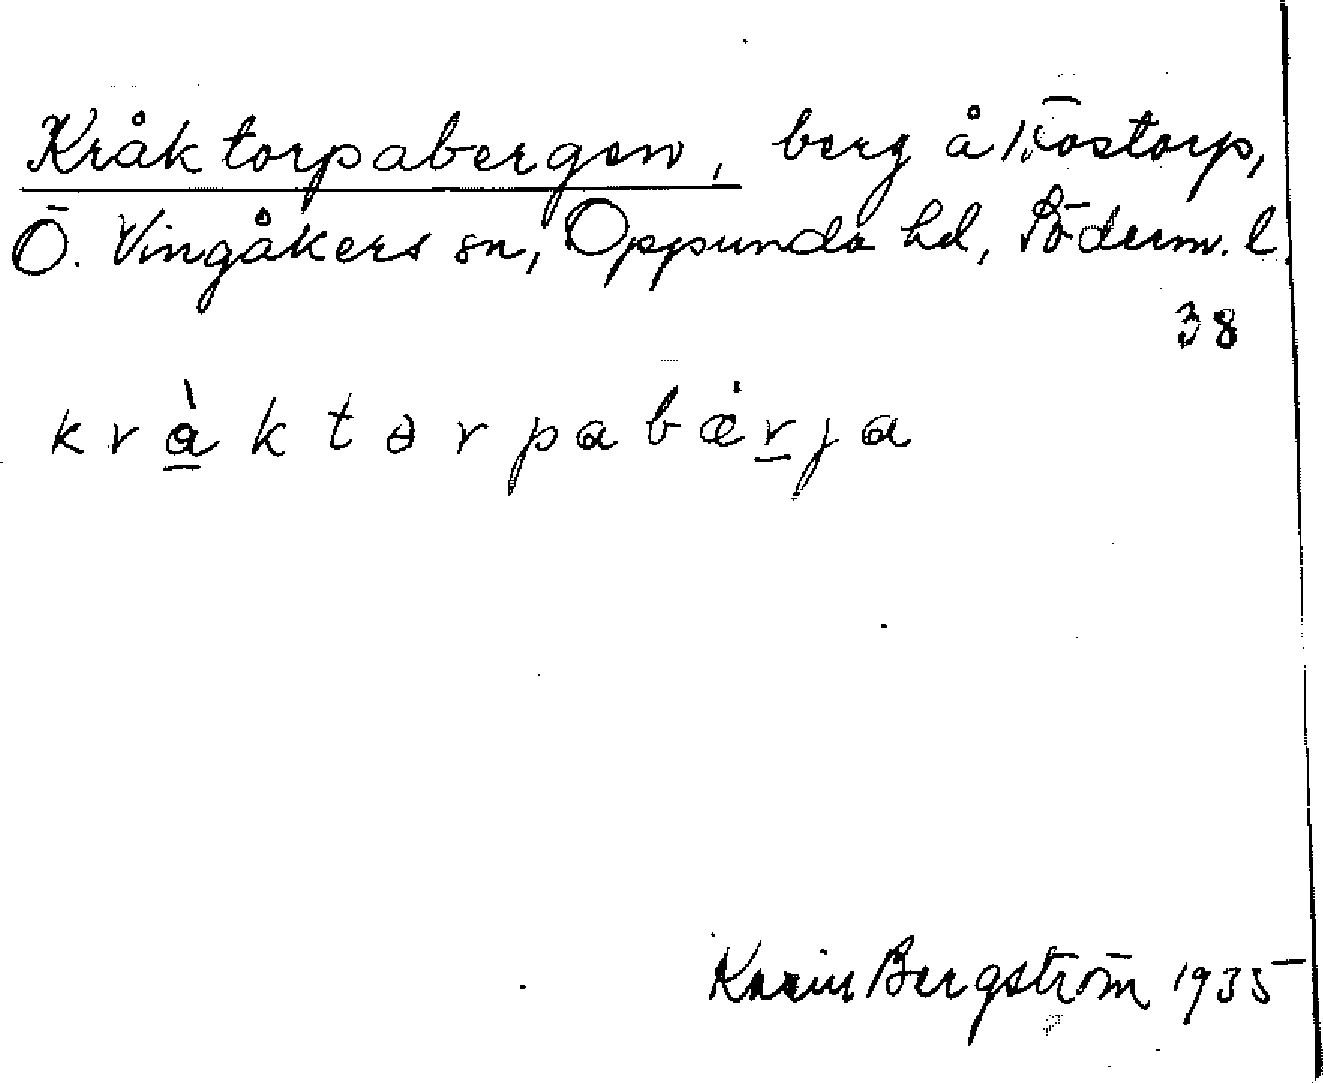 Kråktorpabergen, berg å
Ö. Vingåkers sn, Oppunda hd, Söderm. l.
38
kràktərpabǽrja
Karin Bergström 1935